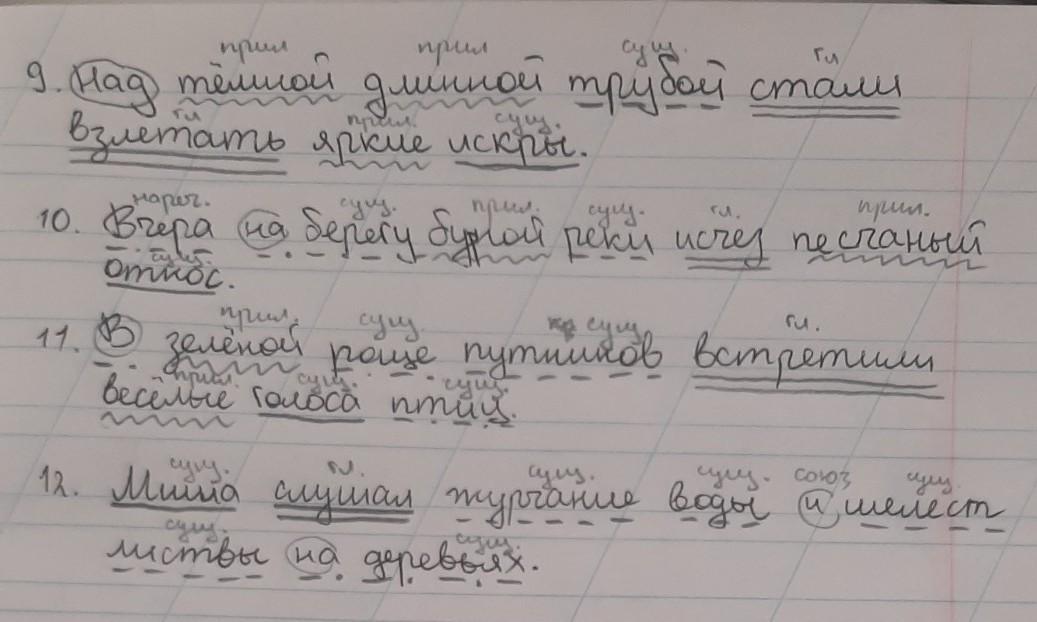 прил прил сущ. гл
9. Над тёмной длинной трубой стали
гл прил. сущ.
взлетать яркие искры.
нареч. сущ. прил. сущ. гл. прил.
10. Вчера на берегу бурной реки исчез песчаный
сущ.
откос.
прил. сущ. сущ. гл.
11. В зелёной роще путников встретили
прил. сущ. сущ.
весёлые голоса птиц.
сущ. гл. сущ. сущ. союз сущ.
12. Миша слушал журчание воды и шелест
сущ. сущ.
листвы на деревьях.